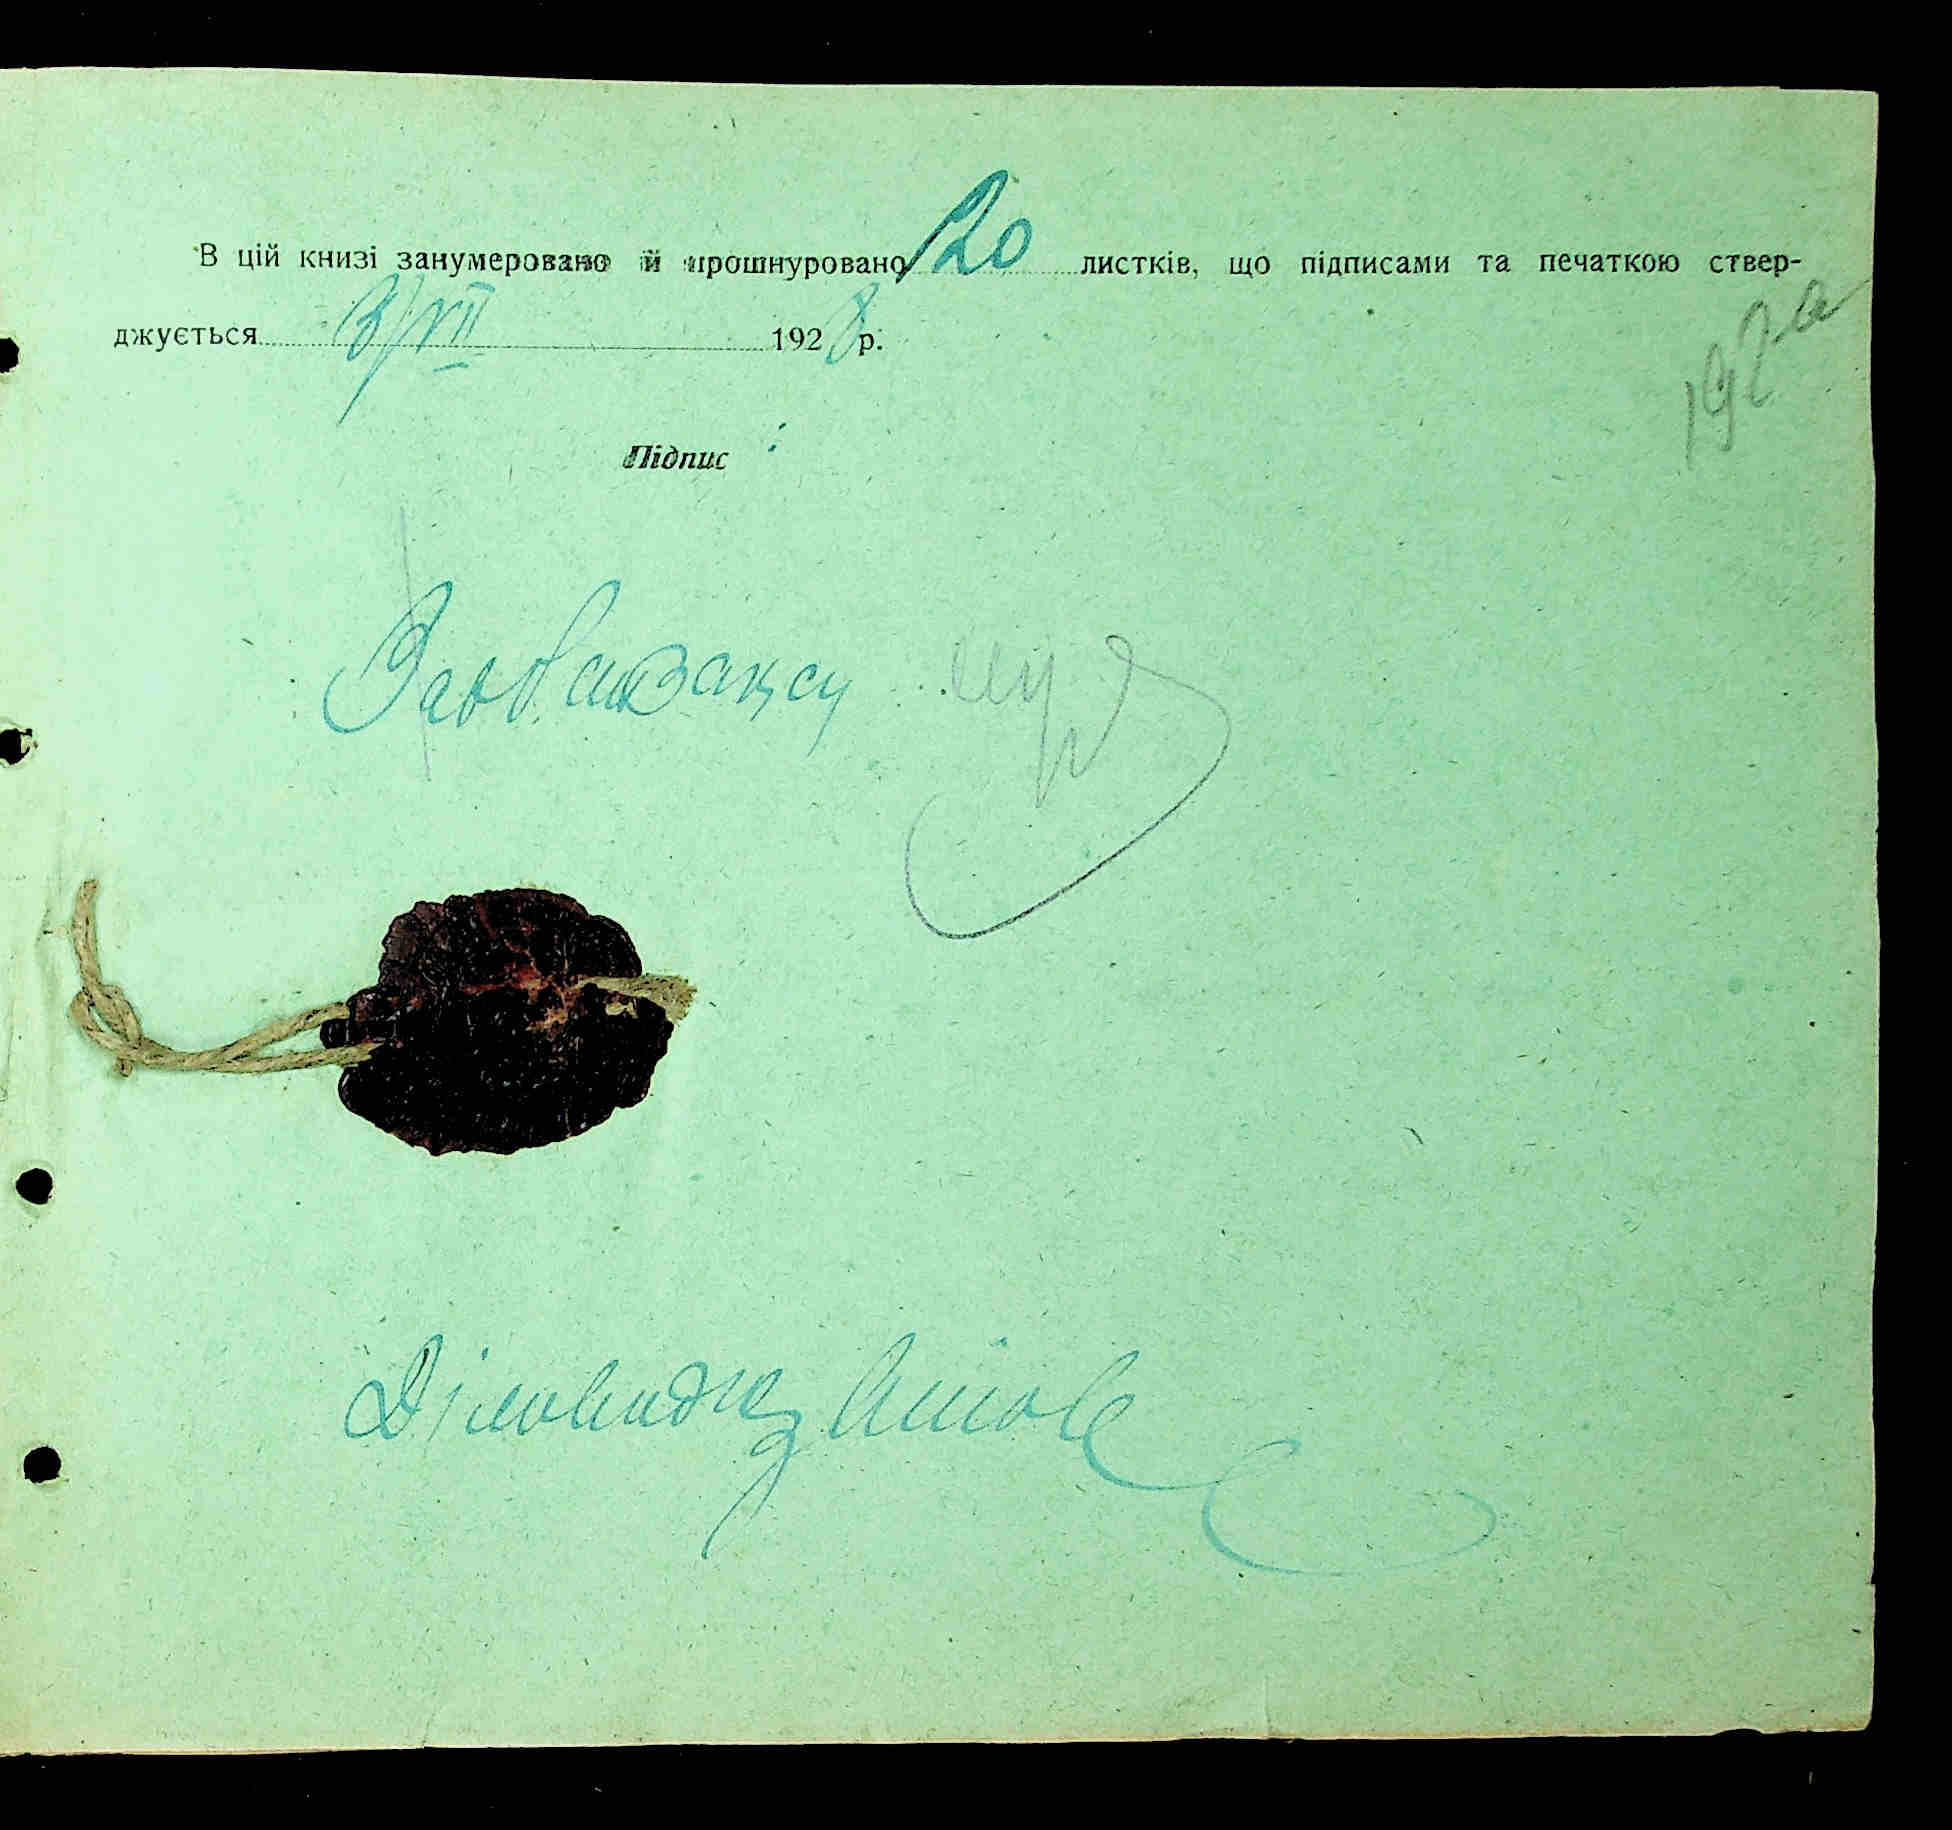 В цій книзі занумеровано й прошнуровано 20 листків, що підписами та печаткою ствер-
джується 3/VII 1928 р.
Підпис:
Діловод